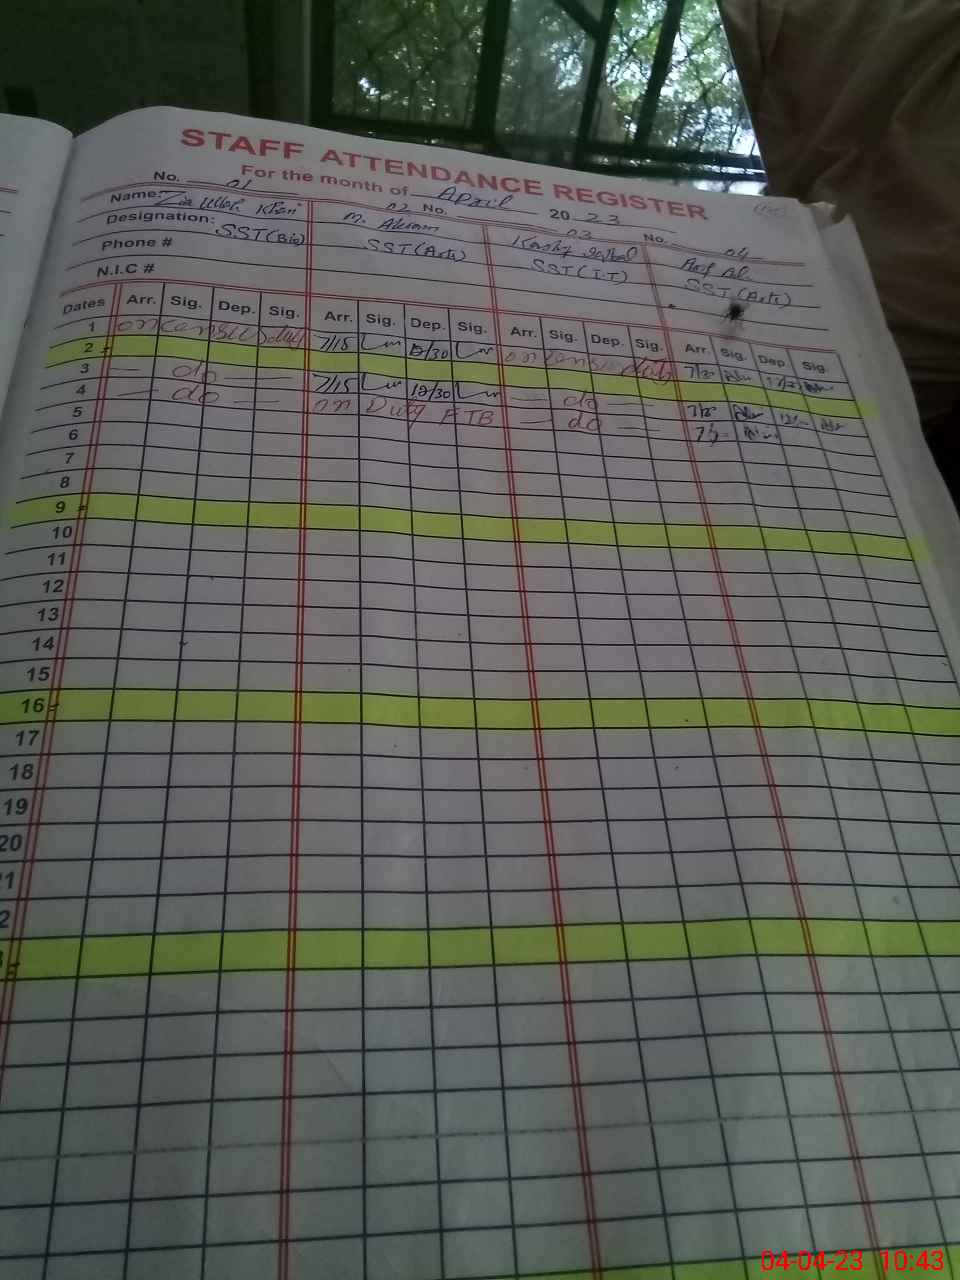 STAFF ATTENDANCE REGISTER
For the month of April 2023
No. 01 02 No. 03 No. 04
Name: Zia Ullah Khan M. Akram Kashif Iqbal
Designation: SST(Bio) SST(Arts) SST(I.T) SST(Arts)
Phone #
N.I.C #
Dates Arr. Sig. Dep. Sig. Arr. Sig. Dep. Sig. Arr. Sig. Dep. Sig. Arr. Sig. Dep. Sig.
1 on census duty 7/15 12/30 on census duty
2
3 — do — 7/15 12/30 — do —
4 — do — on Duty FTB — do —
5
6
7
8
9
10
11
12
13
14
15
16
17
18
19
20
04-04-23 10:43